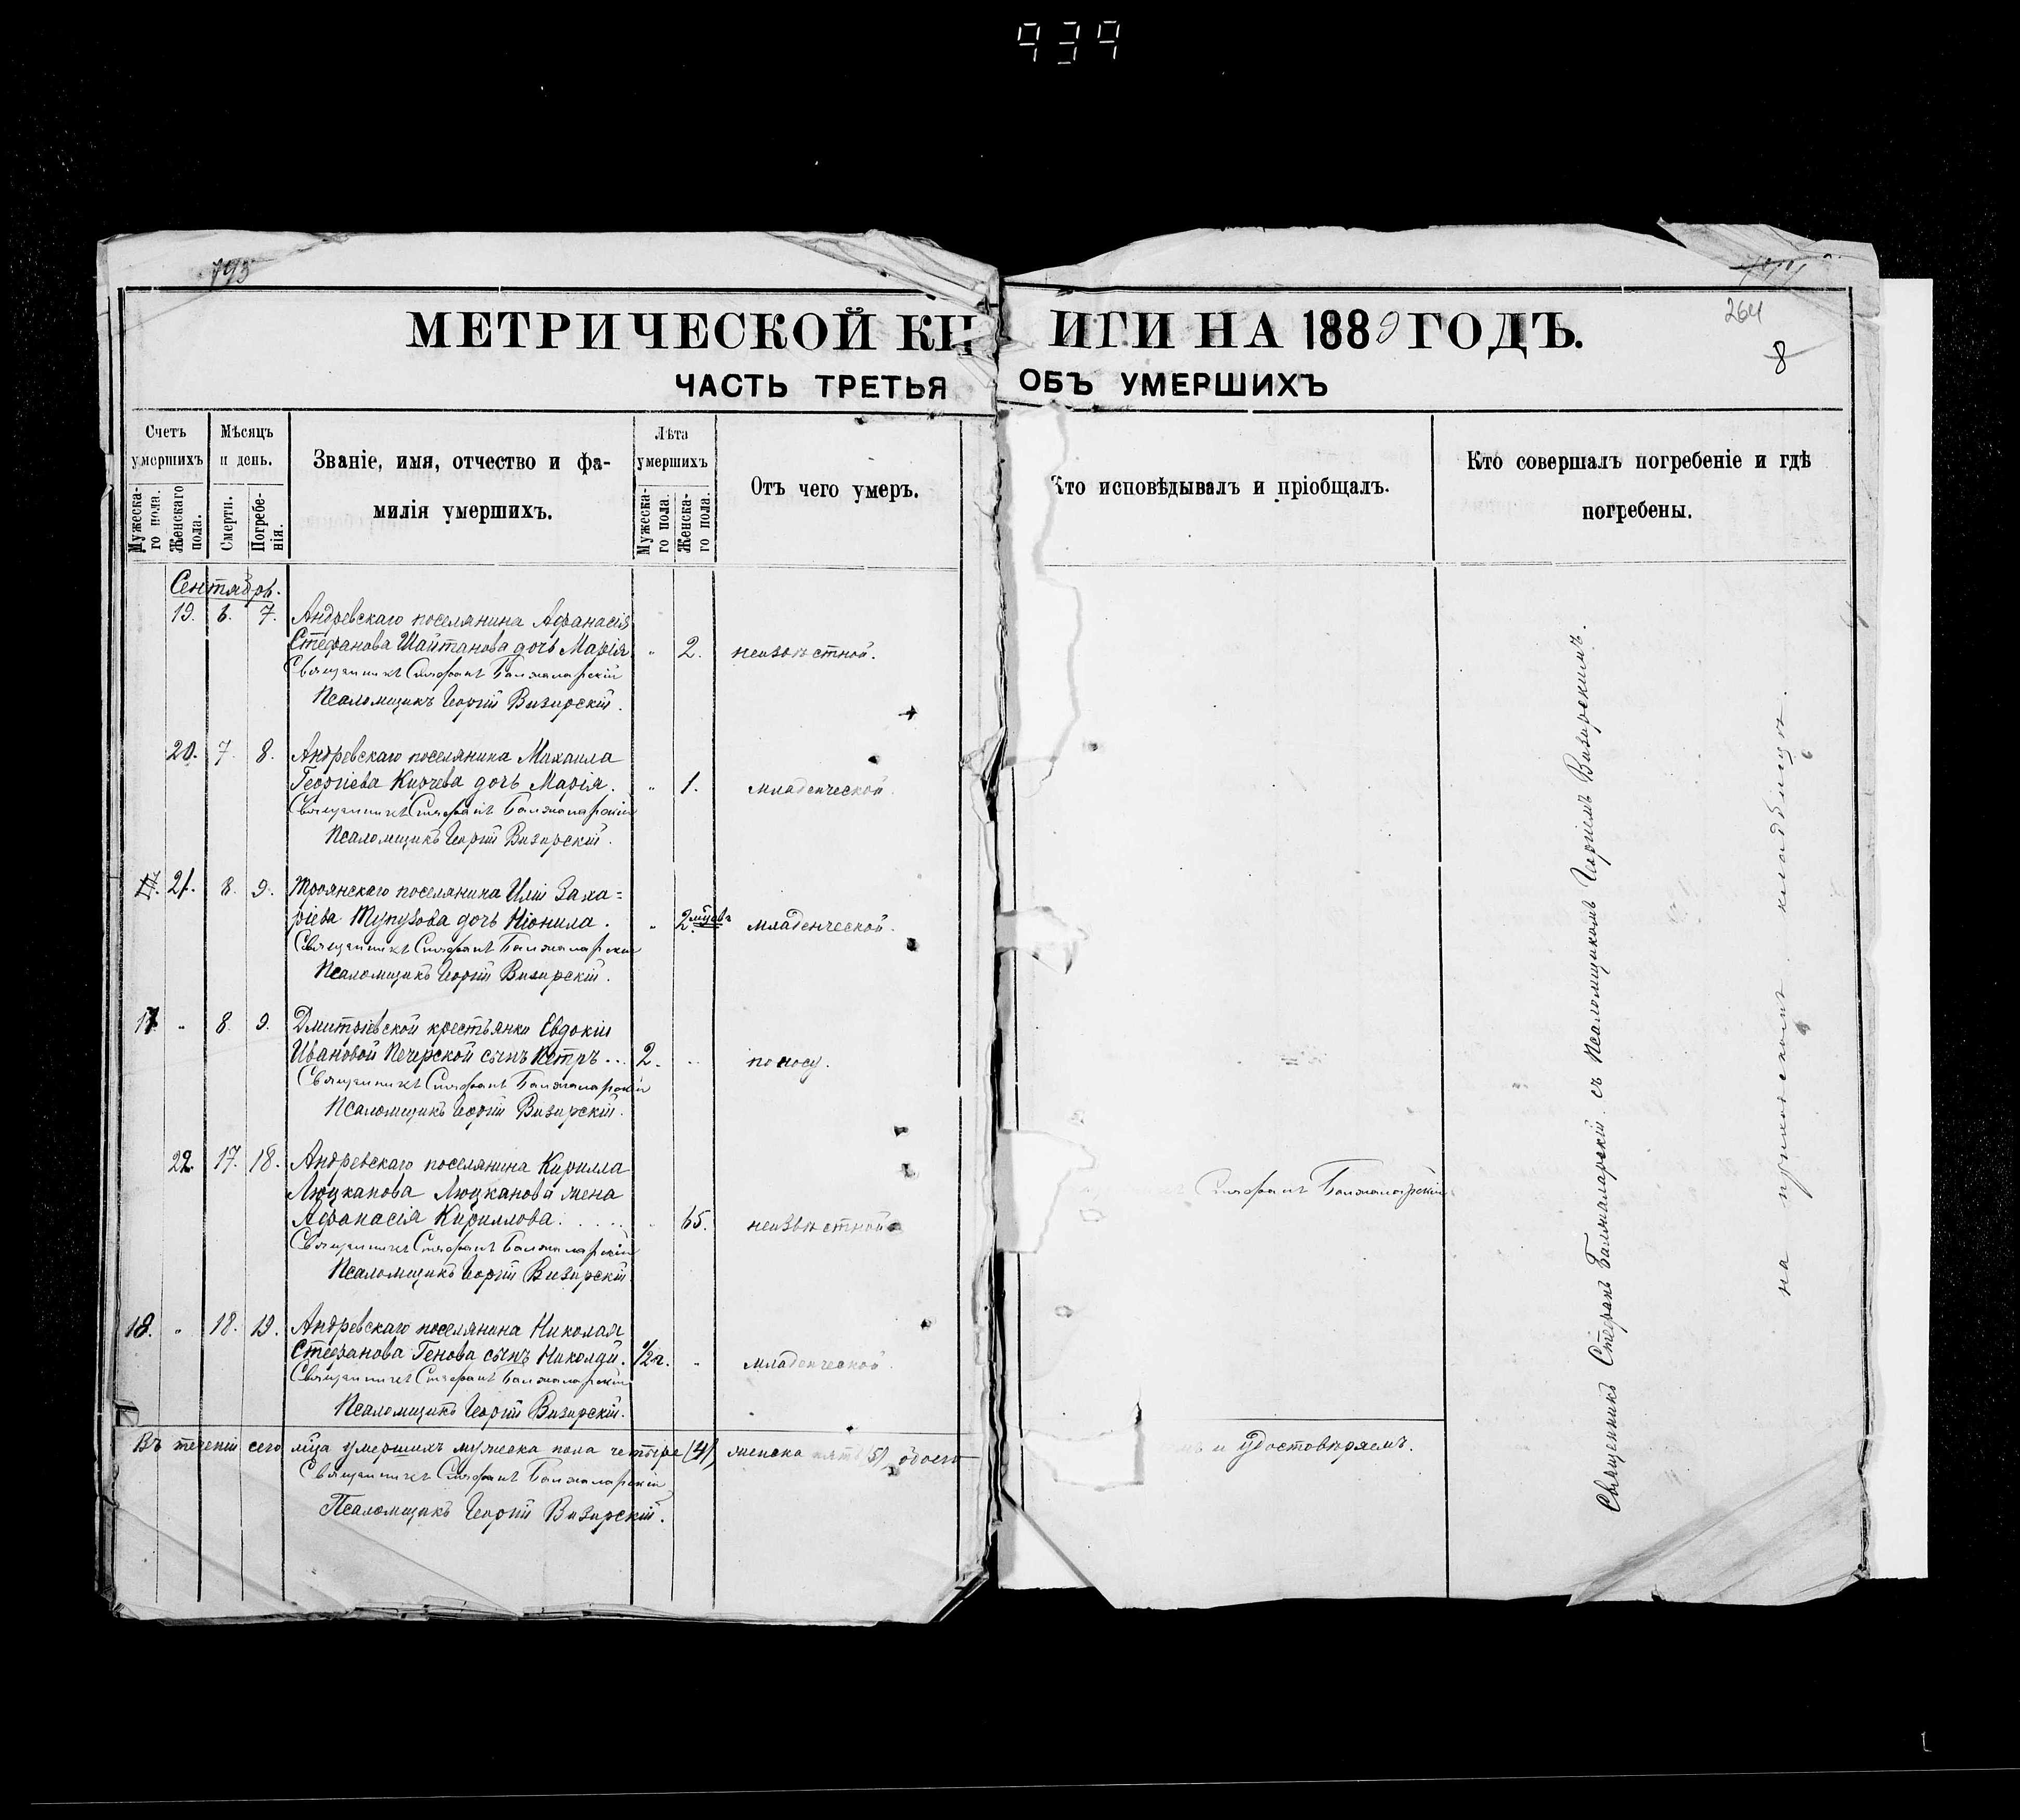 939
793
264
8
МЕТРИЧЕСКОЙ КНИГИ НА 1889 ГОДЪ.
ЧАСТЬ ТРЕТЬЯ ОБЪ УМЕРШИХЪ
Счетъ умершихъ
Мужескаго пола.
Женскаго пола.
Мѣсяцъ и день.
Смерти.
Погребенія.
Званіе, имя, отчество и фамилія умершихъ.
Лѣта умершихъ
Мужескаго пола.
Женскаго пола.
Отъ чего умеръ.
Кто исповѣдывалъ и пріобщалъ.
Кто совершалъ погребеніе и гдѣ погребены.
Сентябрь.
19. 6. 7. Андревскаго поселянина Афанасія
Стефанова Шайтанова дочь Марія " 2. неизвѣстной.
Священникъ Стефанъ Балжаларскій
Псаломщикъ Георгій Визирскій.
20. 7. 8. Андревскаго поселянина Михаила
Георгіева Кирчева дочь Марія. " 1. младенческой.
Священникъ Стефанъ Балжаларскій
Псаломщикъ Георгій Визирскій.
21. 8. 9. Троянскаго поселянина Иліи Заха=
ріева Тупузова дочь Ніонила. " 2. мѣсяв. младенческой.
Священникъ Стефанъ Балжаларскій
Псаломщикъ Георгій Визирскій.
17. " 8. 9. Дмитріевской крестьянки Евдокіи
Ивановой Печерской сынъ Петръ... 2. " поносу.
Священникъ Стефанъ Балжаларскій
Псаломщикъ Георгій Визирскій.
22. 17. 18. Андревскаго поселянина Кирилла
Люцканова Люцканова жена
Афанасія Кириллова..... " 65. неизвѣстной
Священникъ Стефанъ Балжаларскій
Псаломщикъ Георгій Визирскій
Стефанъ Балжаларскій
18. " 18. 19. Андревскаго поселянина Николая
Стефанова Генова сынъ Николай. 1/2 г. " младенческой.
Священникъ Стефанъ Балжаларскій
Псаломщикъ Георгій Визирскій.
Въ теченіи сего мѣсяца умершихъ мужеска пола четыре (4), женска пять (5), обоего
и удостовѣряемъ.
Священникъ Стефанъ Балжаларскій
Псаломщикъ Георгій Визирскій.
Священникъ Стефанъ Балжаларскій съ Псаломщикомъ Георгіемъ Визирскимъ.
на приходскомъ кладбищѣ.